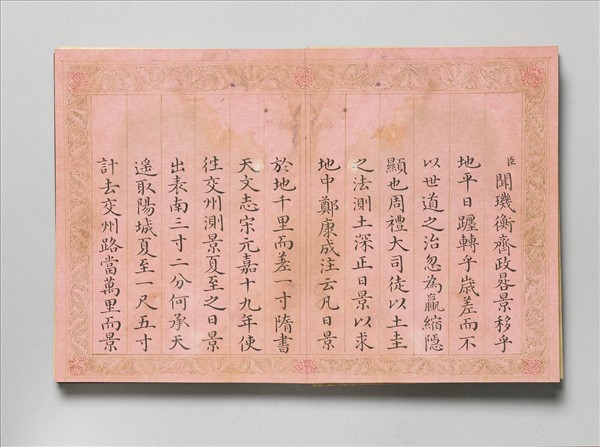 臣聞璣衡齊政晷景移乎
地平日躔轉乎歲差而不
以世道之治忽為贏縮隱
顯也周禮大司徒以土圭
之法測土深正日景以求
地中鄭康成注云凡日景
於地千里而差一寸隋書
天文志宗元嘉十九年使
往交州測景夏至之日景
出表南三寸二分何承天
遥取陽城夏至一尺五寸
計去交州路當萬里而景